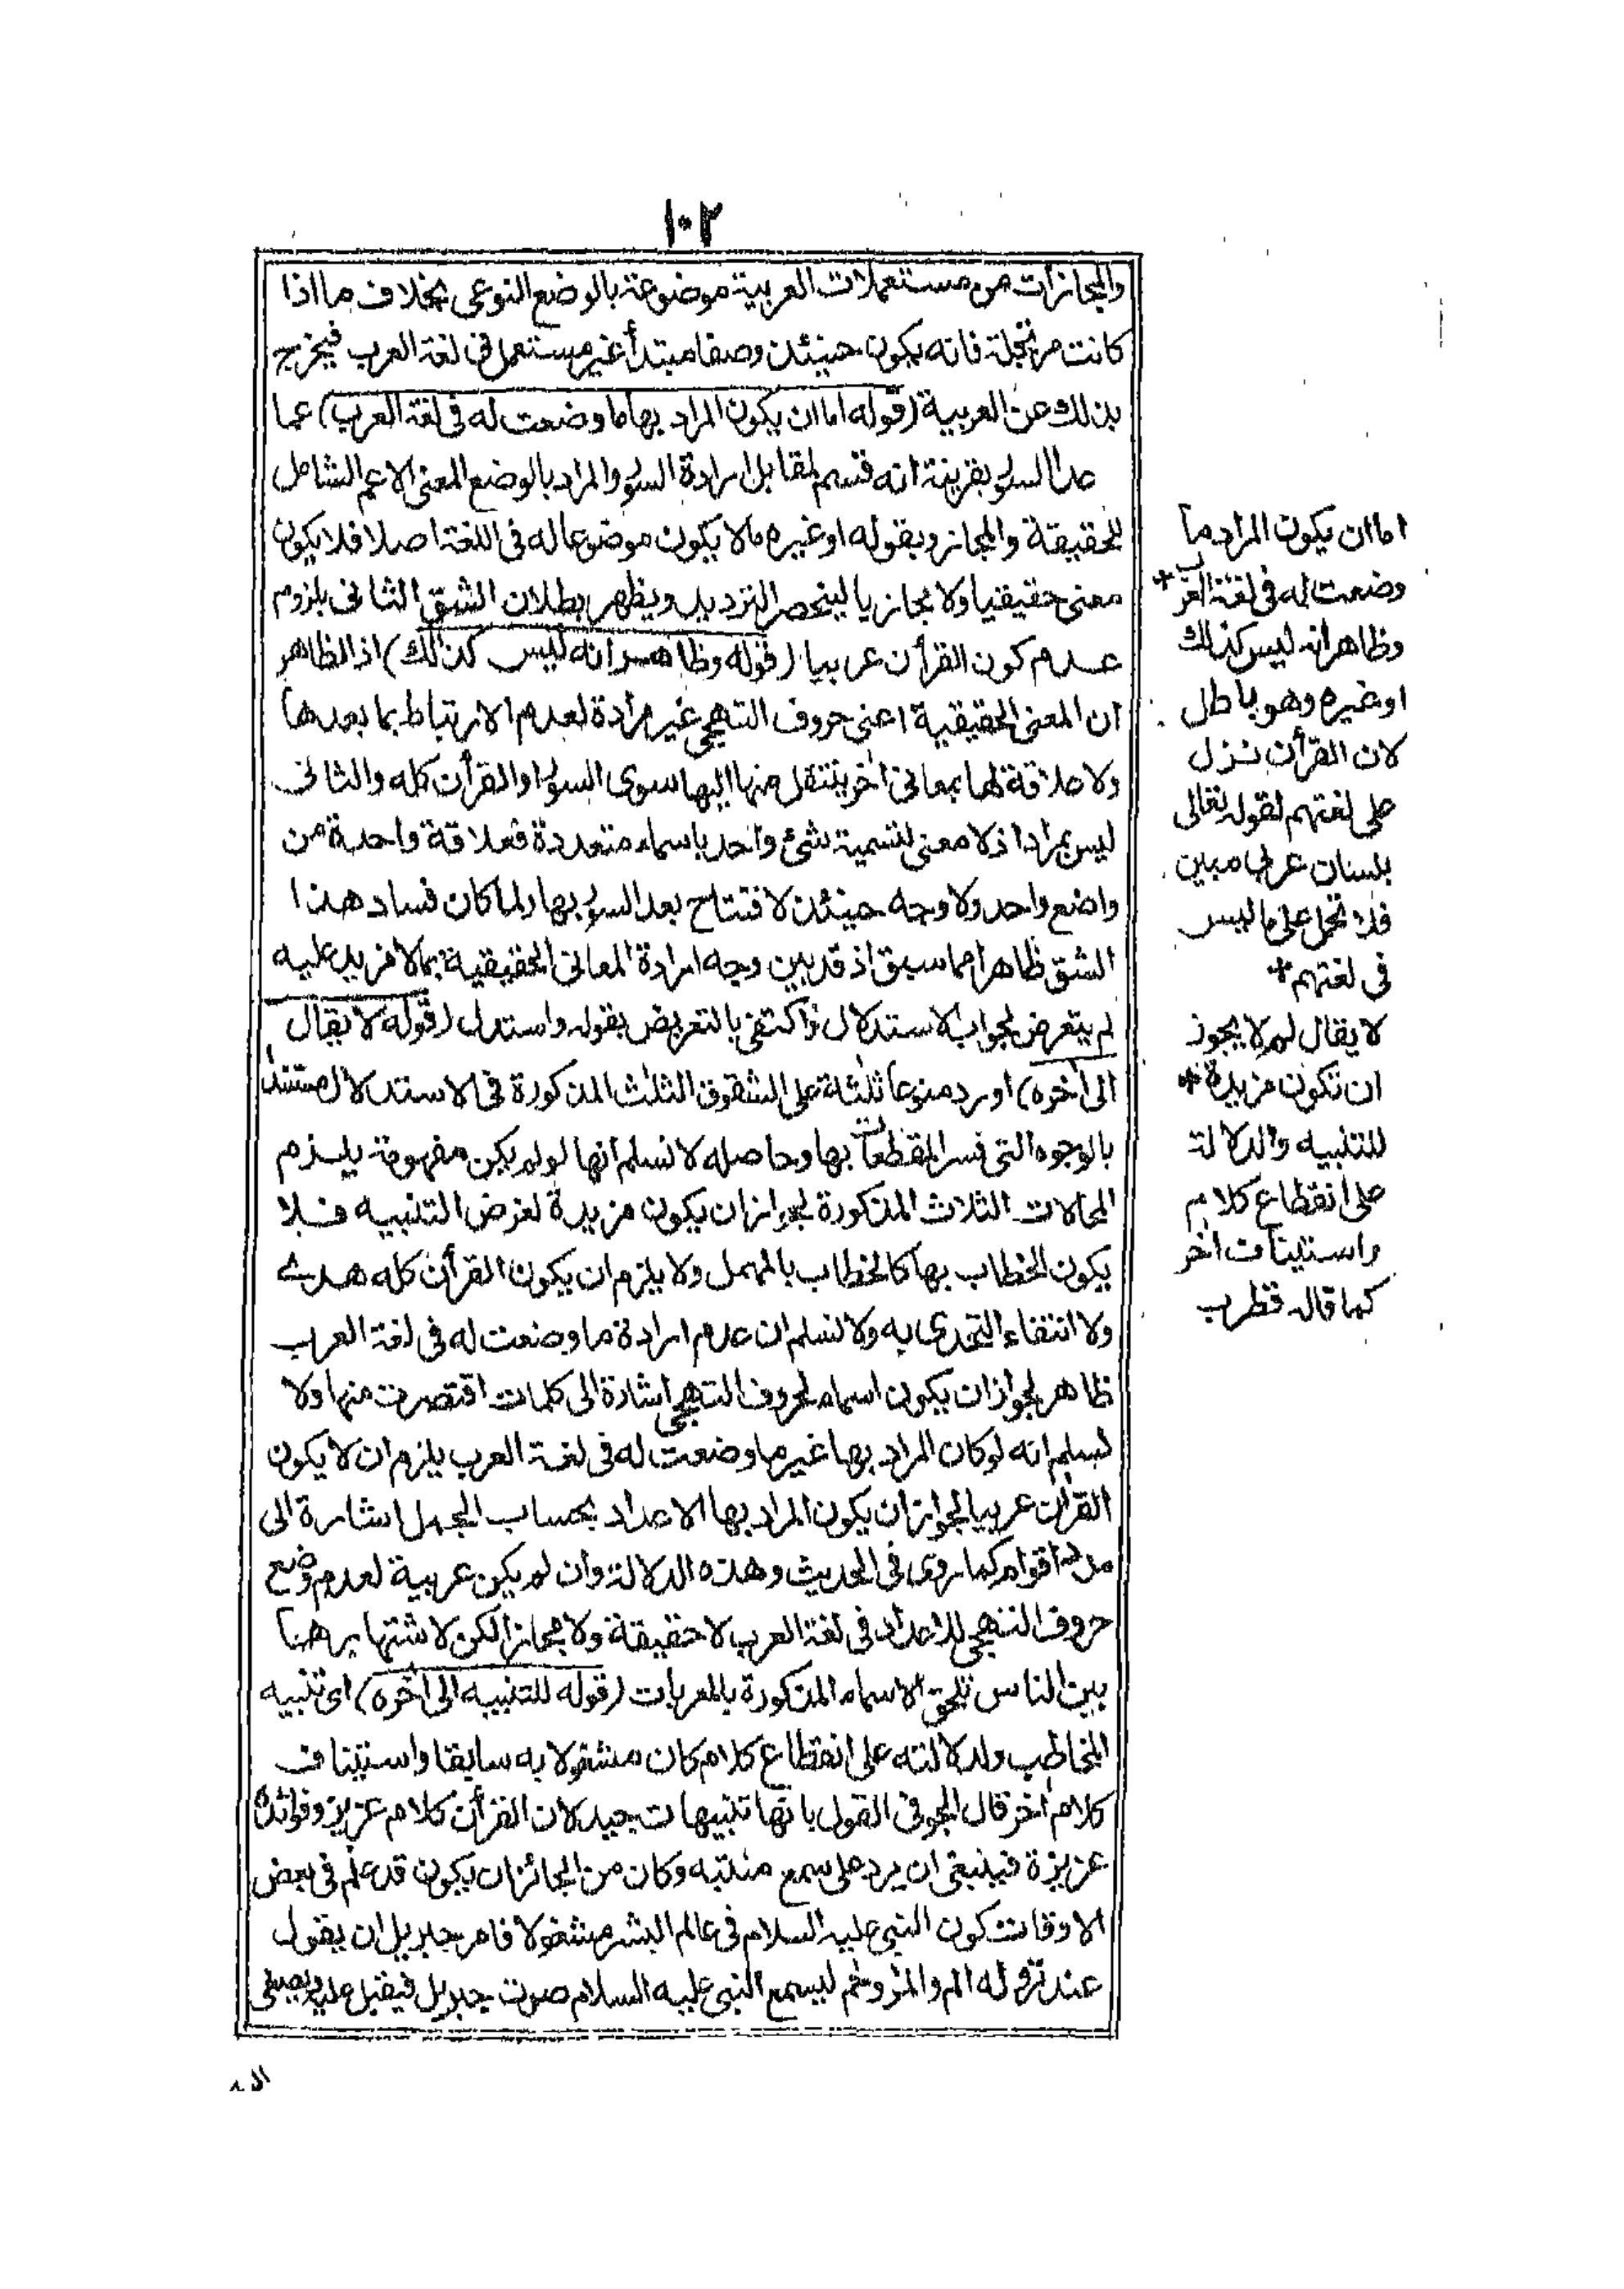 ١٠٢
والمجازات من مستعملات العربية موضوعة بالوضع النوعى بخلاف ما اذا
كانت مرتجلة فانه يكون حينئذ وصفا مبتدأ غير مستعمل فى لغة العرب فيخرج
بذلك عن العربية (قوله اما ان يكون المراد بها ما وضعت له فى لغة العرب) عما
عدا السور بقرينة انه قسم لمقابل ارادة السور والمراد بالوضع المعنى الاعم الشامل
للحقيقة والمجاز وبقوله او غيره مالا يكون موضوعا له فى اللغة اصلا فلا يكون
معنى حقيقيا ولا مجازيا لينحصر الترديد ويظهر بطلان الشق الثانى بلزوم
عدم كون القرأن عربيا (قوله وظاهر انه ليس كذلك) اذ الظاهر
ان المعنى الحقيقية اعنى حروف التهجى غير مرادة لعدم الارتباط بما بعدها
ولا علاقة لها بمعانى اخر ينتقل منها اليها سوى السور او القرأن كله والثانى
ليس بمراد اذ لا معنى لتسمية شئ واحد باسماء متعددة فعلاقة واحدة من
واضع واحد ولا وجه حينئذ لافتتاح بعد السور بها ولما كان فساد هذا
الشق ظاهرا مما سبق اذ قد بين وجه ارادة المعانى الحقيقية بما لا مزيد عليه
لم يتعرض لجواب الاستدلال واكتفى بالتعريض بقوله واستدل (قوله لا يقال
الى أخره) اورد منوعا ثلثة على الشقوق الثلث المذكورة فى الاستدلال مستندا
بالوجوه التى فسر المقطعات بها وحاصله لا نسلم انها لو لم يكن مفهومة يلزم
المحالات الثلاث المذكورة لجواز ان يكون مزيدة لغرض التنبيه فلا
يكون الخطاب بها كالخطاب بالمهمل ولا يلزم ان يكون القرأن كله هدى
ولا انتفاء التحدى به ولا نسلم ان عدم ارادة ما وضعت له فى لغة العرب
ظاهر لجواز ان يكون اسماء لحروف التهجى اشارة الى كلمات اقتصرت منها ولا
نسلم انه لو كان المراد بها غير ما وضعت له فى لغة العرب يلزم ان لا يكون
القرأن عربيا لجواز ان يكون المراد بها الاعداد بحساب الجمل اشارة الى
مدد اقوام كما روى فى الحديث وهذه الدلالة وان لم يكن عربية لعدم وضع
حروف التهجى للاعداد فى لغة العرب لا حقيقة ولا مجازا لكن لاشتهارها
بين الناس تلحق الاسماء المذكورة بالمعربات (قوله للتنبيه الى أخره) اى تنبيه
المخاطب ولدلالته على انقطاع كلام كان مشغولا به سابقا واستيناف
كلام أخر قال الجوفى القول بانها تنبيهات جيد لان القرأن كلام عزيز وفوائده
عزيزة فينبغى ان يرد على سمع منتبه وكان من الجائزان يكون قد علم فى بعض
الاوقات كون النبى عليه السلام فى عالم البشر مشغولا فامر جبريل ان يقول
عند نزوله الم والمر وحم ليسمع النبى عليه السلام صوت جبريل فيقبل عليه ويصغى
اما ان يكون المراد ما
وضعت له فى لغة العرب *
وظاهر انه ليس كذلك
او غيره وهو باطل
لان القرأن نزل
على لغتهم لقوله تعالى
بلسان عربى مبين
فلا تحمل على ما ليس
فى لغتهم *
لا يقال لم لا يجوز
ان تكون مزيدة *
للتنبيه والدلالة
على انقطاع كلام
واستيناف اخر
كما قاله قطرب